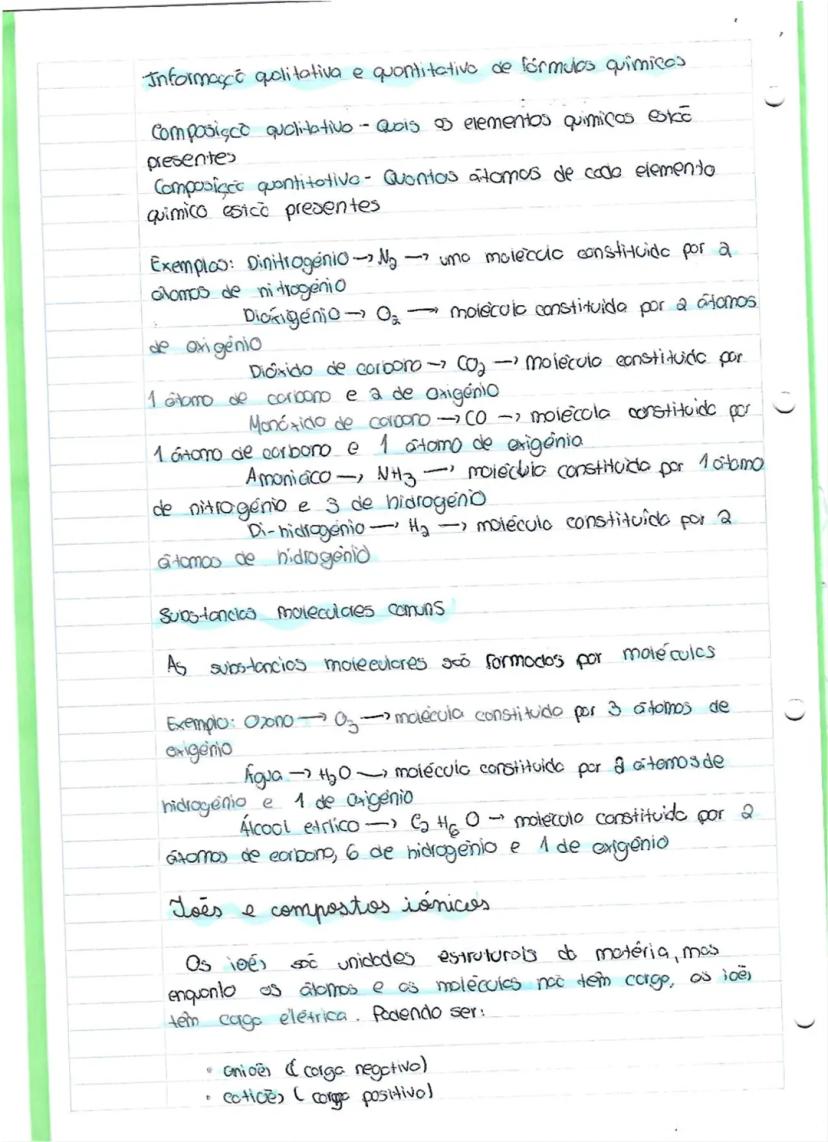 Informação qualitativa e quantitativa de fórmulas químicas
Composição qualitativa - Quais os elementos químicos estão
presentes
Composição quantitativa - Quantos átomos de cada elemento
químico estão presentes
Exemplos: Dinitrogénio → N₂ → uma molécula constituída por 2
átomos de nitrogénio
Dioxigénio → O₂ → molécula constituída por 2 átomos
de oxigénio
Dióxido de carbono → CO₂ → molécula constituída por
1 átomo de carbono e 2 de oxigénio
Monóxido de carbono → CO → molécula constituída por
1 átomo de carbono e 1 átomo de oxigénio
Amoníaco → NH₃ → molécula constituída por 1 átomo
de nitrogénio e 3 de hidrogénio
Di-hidrogénio → H₂ → molécula constituída por 2
átomos de hidrogénio
Substancias moleculares comuns
As substancias moleculares são formadas por moléculas
Exemplo: Ozono → O₃ → molécula constituída por 3 átomos de
oxigénio
Água → H₂O → molécula constituída por 2 átomos de
hidrogénio e 1 de oxigénio
Álcool etílico → C₂H₆O → molécula constituída por 2
átomos de carbono, 6 de hidrogénio e 1 de oxigénio
Ioēs e compostos iónicos
Os ioēs são unidades estruturais da matéria, mas
enquanto os átomos e as moléculas não têm carga, os ioēs
têm caga elétrica. Podendo ser:
• anioēs (carga negativa)
• catioēs (carga positiva)